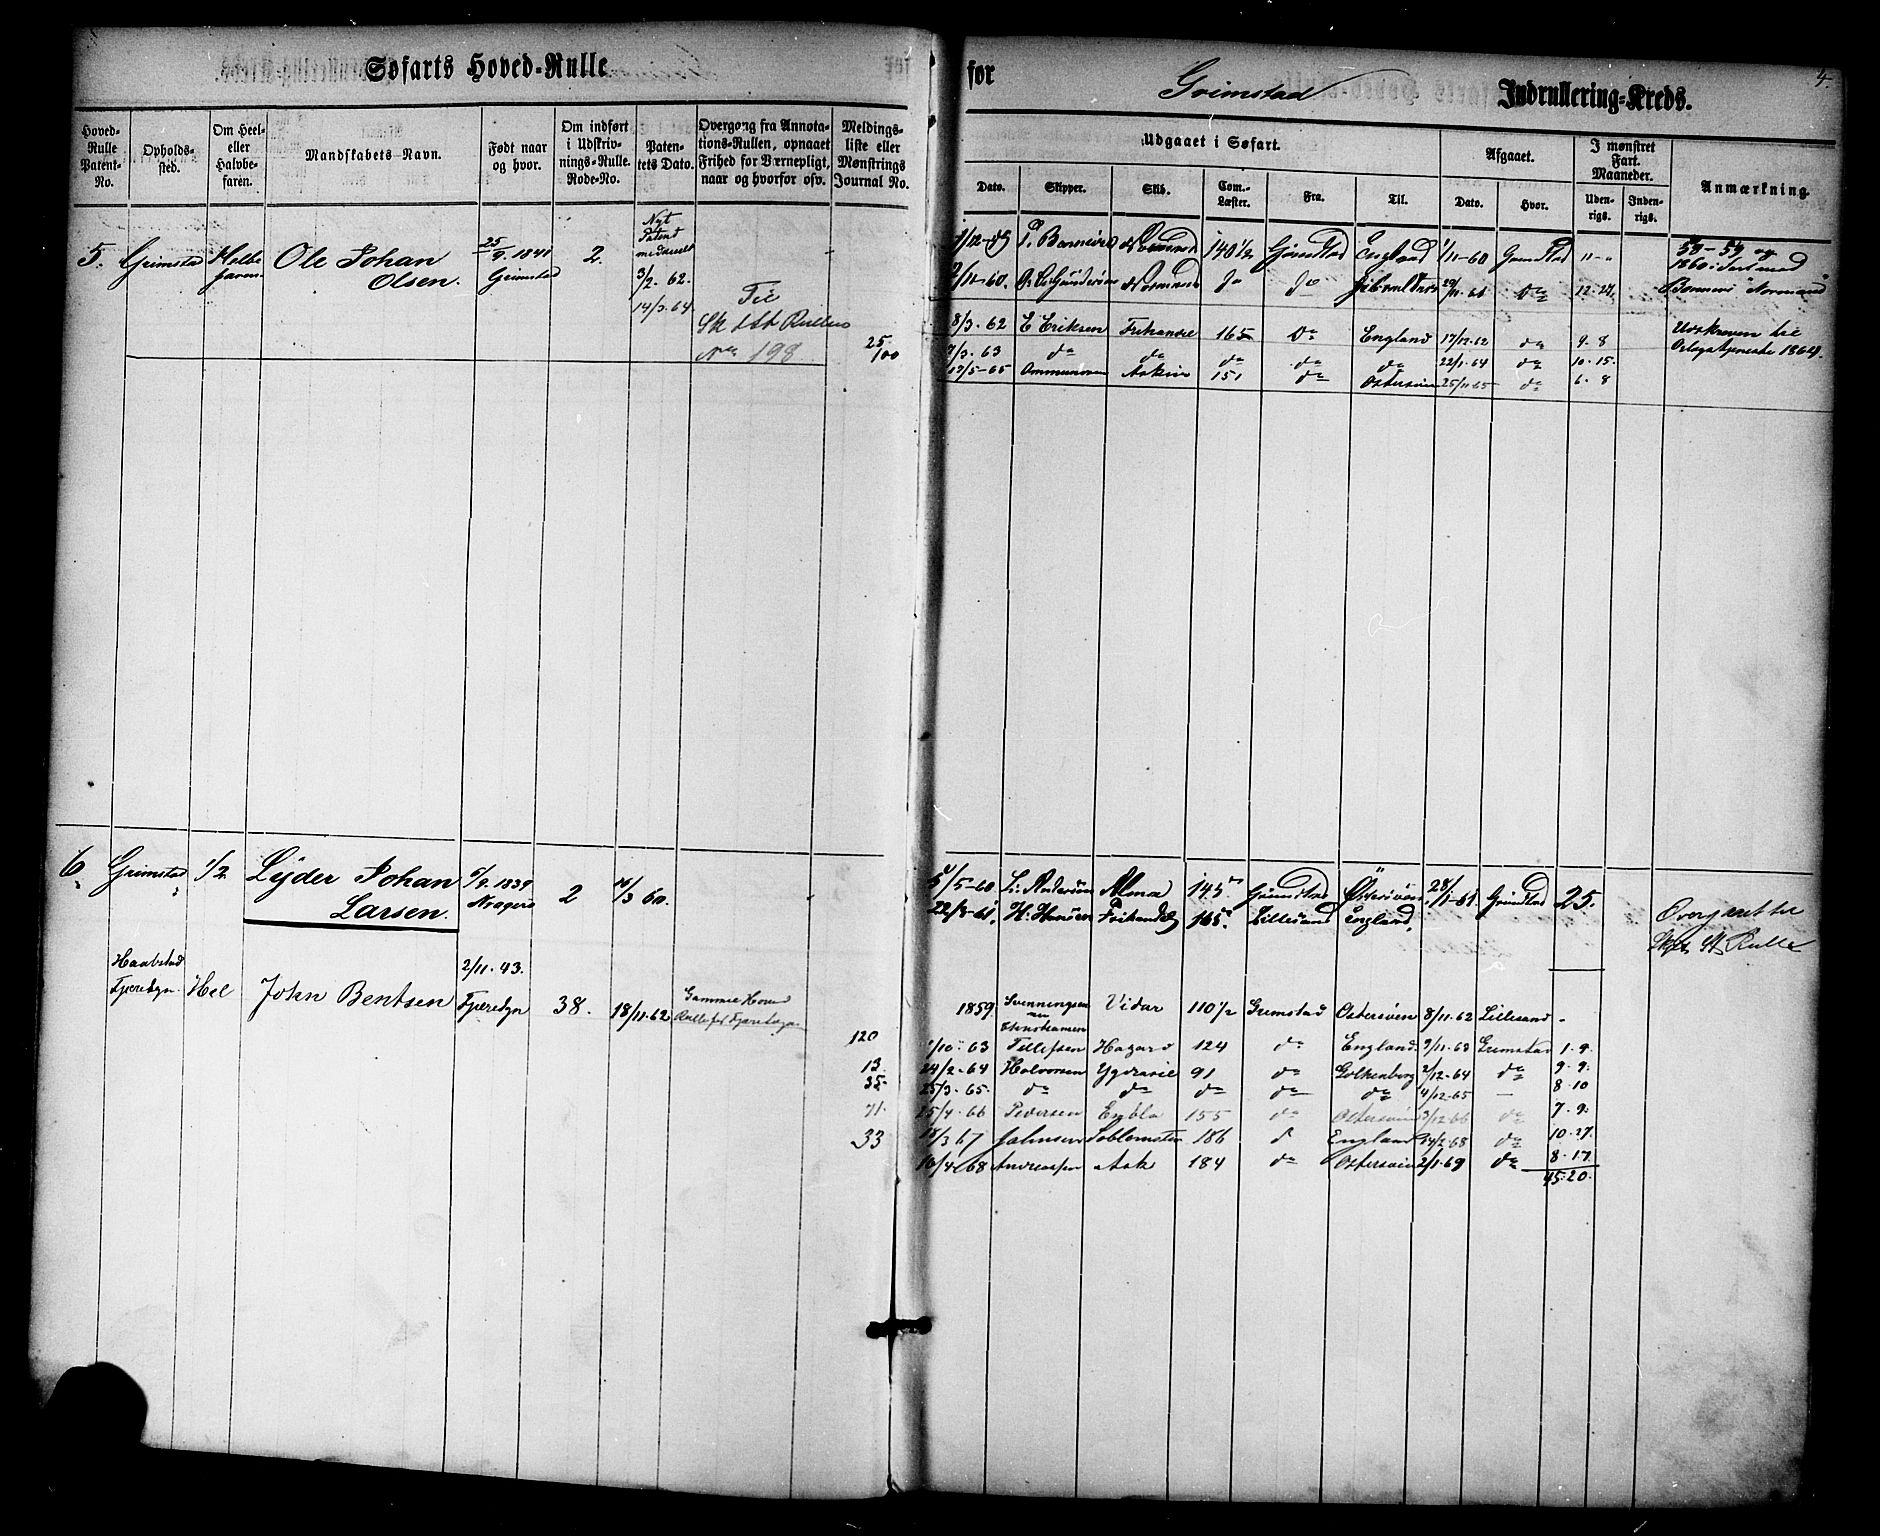 Søfarts Hoved-Rulle
for Grimstad Indrullering-Kreds.
4.
Hoved-Rulle Patent-No.
Opholds-sted.
Om Heel- eller Halvbe-faren.
Mandskabets Navn.
Født naar og hvor.
Om indført i Udskriv-nings-Rulle. Rode-No.
Paten-tets Dato.
Overgang fra Annota-tions-Rullen, opnaaet Frihed for Værnepligt, naar og hvorfor osv.
Meldings-liste eller Mønstrings Journal No.
Udgaaet i Søfart.
Dato. Skipper. Skib. Com.-Læster. Fra. Til.
Afgaaet.
Dato. Hvor.
I mønstret Fart. Maaneder.
Uden-rigs. Inden-rigs.
Anmærkning.
5. Grimstad Ole Johan Olsen. 25/9. 1841 Grimstad 2.
Nyt Patent meddeelt 3/2. 62.
14/3. 64
Til
Rullens
No 198
25/100
140 1/2 Grimstad England 1/11-60 Grimstad
12. 27.
8/3. 62 E Eriksen Frihandel 165 Do England 17/12. 62 do 9. 8
7/3. 63 do do do do do 22/1. 64 do 10. 15.
17/5-65 151 do Østersøen 25/11. 65 do 6. 8
59-59 og
1860 i Fart med
Udskreven til
Orlogstjeneste 1864.
6. Grimstad 1/2 Lyder Johan Larsen. 6/9. 1839 Kragerø 2 14/3 60.
5/5-60 Alma 145 Grimstad 28/1-61 Grimstad 25.
22/3-61 H. Hansen Frihandel 165 Lillesand England.
Overgaaet til
St Rulle
Fjæredyn Hel John Bentsen 2/11. 43. Fjæredyn 38. 18/11. 62 Gammel Hoved
Rulle for
1859 Svenningsen Vidar 110 1/2 Grimstad Østersøen 8/11. 62 Lillesand -
Christiansen
120 1/10. 63 Tellefsen 124 do England 9/11. 63 Grimstad 1. 9.
13. 24/2. 64 Halvorsen Ygdrasil 91 do Gothenborg 2/12. 64 do 9. 9.
35 25/3. 65. do do do do do 4/12. 65 - 8. 10
71. 25/4. 66 Pedersen Embla 155 do Østersøen 3/12. 66 do 7. 9.
33 18/3 67 Johnsen 186 d England 24/2. 68 do 10. 27.
10/4 68 Andreassen Ask 184 do Østersøen 2/1. 69 do 8. 17.
45. 20.